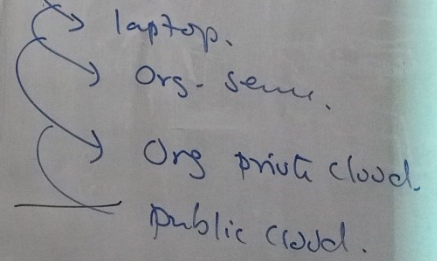 laptop.
Org.
Org private cloud.
public cloud.